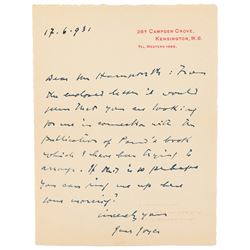 28B CAMPDEN GROVE,
KENSINGTON, W. 8.
TEL. WESTERN
17.6.931
Dear Mr : From
the enclosed letter it would
seem that you are looking
for me in connection with the
publication of Pound's book
which I have been trying to
arrange. If this is so perhaps
you can ring me up here
some morning?
Sincerely yours
James Joyce